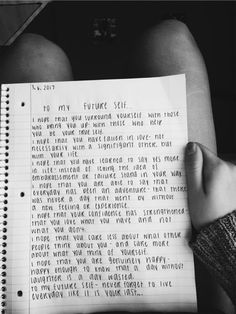 1.6.2017
TO MY FUTURE SELF...
I hope that you surround yourself with those
who bring you up. With those who help
you be your true self.
I hope that you have fallen in love. not
necessarily with a significant other, but
with your life.
I hope that you have learned to say yes more
in life. instead of letting the idea of
embarrassment or failure stand in your way.
I hope that you are able to say that
everyday has been an adventure. that there
was never a day that went by without
a new feeling or experience.
I hope that your confidence has strengthened
that you love what you have and not
what you don't.
I hope that you care less about what other
people think about you - and care more
about what you think of yourself.
I hope that you are genuinely happy.
happy enough to know that a day without
laughter is a day wasted.
to my future self - never forget to live
everyday like it is your last...